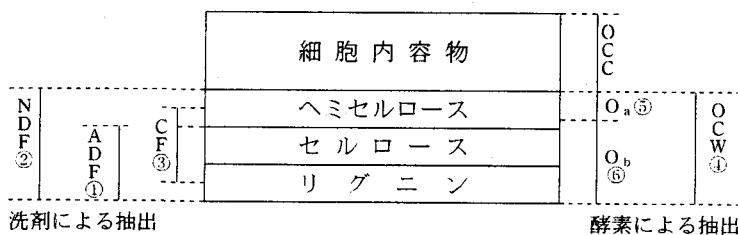 細胞内容物
ヘミセルロース
セルロース
リグニン
NDF②
ADF①
CF③
OCC
Oa⑤
Ob⑥
OCW④
洗剤による抽出
酵素による抽出